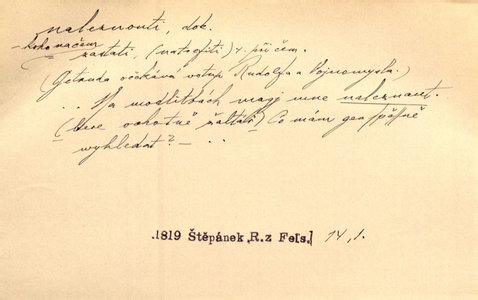 naleznouti, dok.
koho na čem
zastati, (natrefiti) v. při čem.
(Getruda očekává vstup Rudolfa a Vojnomysla.)
.. Na modlitbách mají mne naleznout.
(bere ochotně žaltář) Co mám geo spěšně
vyhledat? — ..
.1819 Štěpánek „R. z Fels." 14, 1.